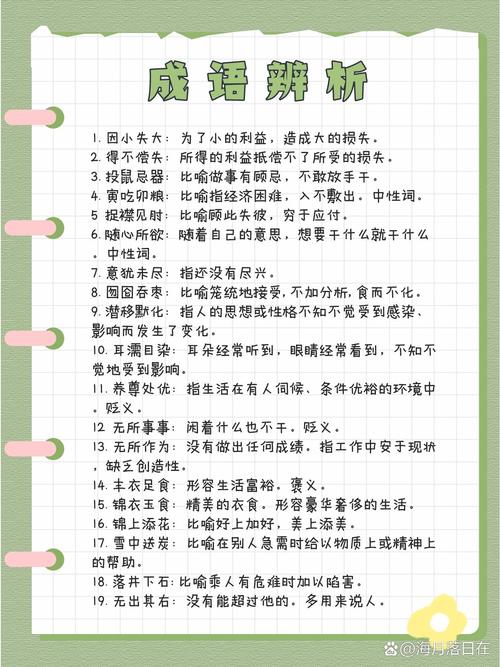 成语辨析
1. 因小失大：为了小的利益，造成大的损失。
2. 得不偿失：所得的利益抵偿不了所受的损失。
3. 投鼠忌器：比喻做事有顾忌，不敢放手干。
4. 寅吃卯粮：比喻指经济困难，入不敷出。中性词。
5 捉襟见肘：比喻顾此失彼，穷于应付。
6. 随心所欲：随着自己的意思，想要干什么就干什么
。中性词。
7. 意犹未尽：指还没有尽兴。
8. 囫囵吞枣：比喻笼统地接受,不加分析,食而不化。
9. 潜移默化：指人的思想或性格不知不觉受到感染、
影响而发生了变化。
10. 耳濡目染：耳朵经常听到，眼睛经常看到，不知不
觉地受到影响。
11. 养尊处优：指生活在有人伺候、条件优裕的环境中
。贬义。
12. 无所事事：闲着什么也不干。贬义。
13. 无所作为：没有做出任何成绩。指工作中安于现状
，缺乏创造性。
14. 丰衣足食：形容生活富裕。褒义。
15. 锦衣玉食：精美的衣食。形容豪华奢侈的生活。
16. 锦上添花：比喻好上加好，美上添美。
17. 雪中送炭：比喻在别人急需时给以物质上或精神上
的帮助。
18. 落井下石: 比喻乘人有危难时加以陷害。
19. 无出其右：没有能超过他的。多用来说人。
@海月落日在